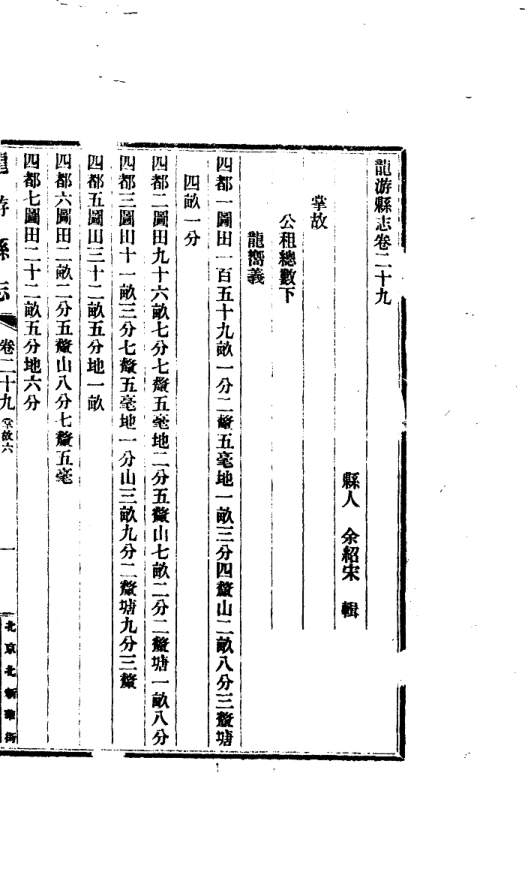 龍游縣志卷二十九
縣人　余紹宋　輯
掌故
公租總數下
龍嚮義
四都一圖田一百五十九畝一分二釐五毫地一畝三分四釐山二畝八分三釐塘
四畝一分
四都二圖田九十六畝七分七釐五毫地二分五釐山七畝二分二釐塘一畝八分
四都三圖田十一畝三分七釐五毫地一分山三畝九分二釐塘九分三釐
四都五圖田三十二畝五分地一畝
四都六圖田二畝二分五釐山八分七釐五毫
四都七圖田二十二畝五分地六分
龍游縣志　卷二十九　掌故六　一　北京北新華街